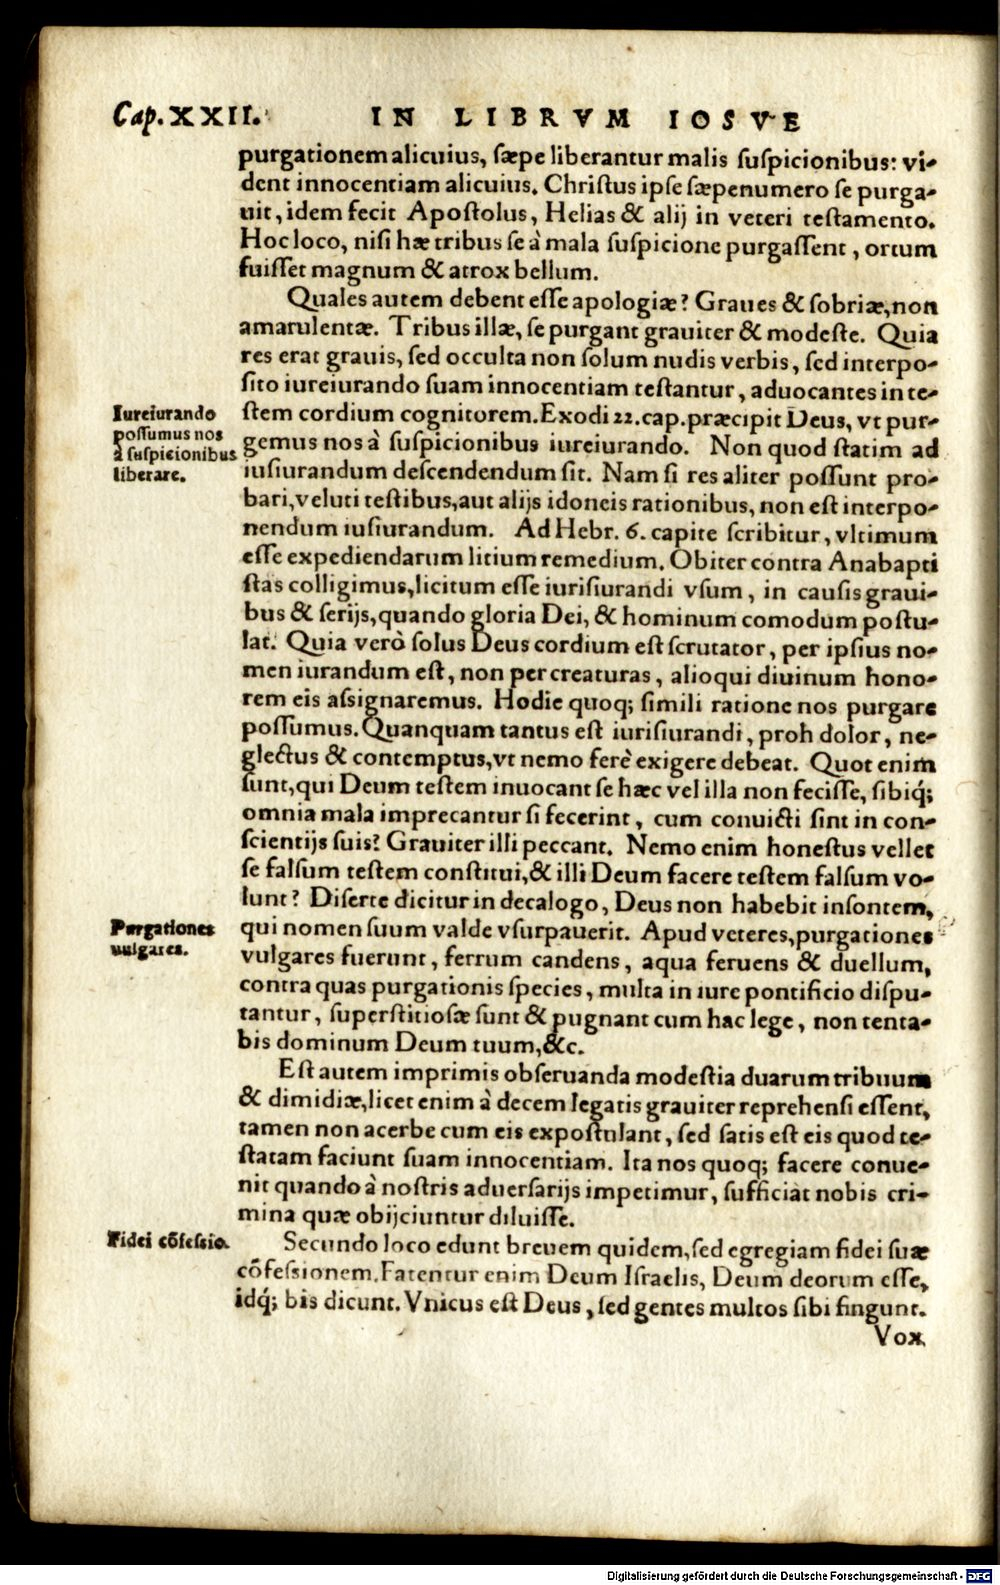 Cap. XXII. IN LIBRVM IOSVE
purgationem alicuius, sæpe liberantur malis suspicionibus: vi-
dent innocentiam alicuius. Christus ipse sæpenumero se purga-
uit, idem fecit Apostolus, Helias & alij in veteri testamento.
Hoc loco, nisi hæ tribus se à mala suspicione purgassent, ortum
fuisset magnum & atrox bellum.
Quales autem debent esse apologiæ? Graues & sobriæ, non
amarulentæ. Tribus illæ, se purgant grauiter & modeste. Quia
res erat grauis, sed occulta non solum nudis verbis, sed interpo-
sito iureiurando suam innocentiam testantur, aduocantes in te-
stem cordium cognitorem. Exodi 22. cap. præcipit Deus, vt pur-
gemus nos à suspicionibus iureiurando. Non quod statim ad
iusiurandum descendendum sit. Nam si res aliter possunt pro-
bari, veluti testibus, aut alijs idoneis rationibus, non est interpo-
nendum iusiurandum. Ad Hebr. 6. capite scribitur, vltimum
esse expediendarum litium remedium. Obiter contra Anabapti
stas colligimus, licitum esse iurisiurandi vsum, in causis graui-
bus & serijs, quando gloria Dei, & hominum comodum postu-
lat. Quia verò solus Deus cordium est scrutator, per ipsius no-
men iurandum est, non per creaturas, alioqui diuinum hono-
rem eis assignaremus. Hodie quoq; simili ratione nos purgare
possumus. Quanquam tantus est iurisiurandi, proh dolor, ne-
glectus & contemptus, vt nemo ferè exigere debeat. Quot enim
sunt, qui Deum testem inuocant se hæc vel illa non fecisse, sibiq́;
omnia mala imprecantur si fecerint, cum conuicti sint in con-
scientijs suis? Grauiter illi peccant. Nemo enim honestus vellet
se falsum testem constitui, & illi Deum facere testem falsum vo-
lunt? Diserte dicitur in decalogo, Deus non habebit insontem,
qui nomen suum valde vsurpauerit. Apud veteres, purgationes
vulgares fuerunt, ferrum candens, aqua feruens & duellum,
contra quas purgationis species, multa in iure pontificio dispu-
tantur, superstitiosæ sunt & pugnant cum hac lege, non tenta-
bis dominum Deum tuum, &c.
Est autem imprimis obseruanda modestia duarum tribuum
& dimidiæ, licet enim à decem legatis grauiter reprehensi essent,
tamen non acerbe cum eis expostulant, sed satis est eis quod te-
statam faciunt suam innocentiam. Ita nos quoq; facere conue-
nit quando à nostris aduersarijs impetimur, sufficiat nobis cri-
mina quæ obijciuntur diluisse.
Secundo loco edunt breuem quidem, sed egregiam fidei suæ
cōfessionem. Fatentur enim Deum Israelis, Deum deorum esse,
idq́; bis dicunt. Vnicus est Deus, sed gentes multos sibi fingunt.
Vox
Iureiurando
possumus nos
à suspicionibus
liberare.
Purgationes
vulgares.
Fidei cōfessio.
Digitalisierung gefördert durch die Deutsche Forschungsgemeinschaft - DFG